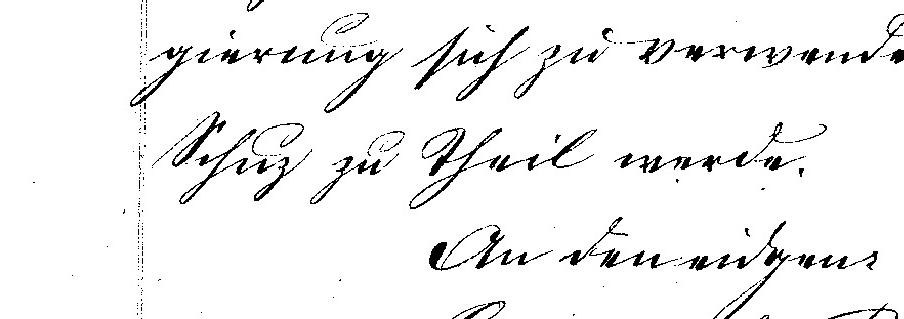 gierung sich zu verwende
Schuz zu Theil werde.
An den eidgen: